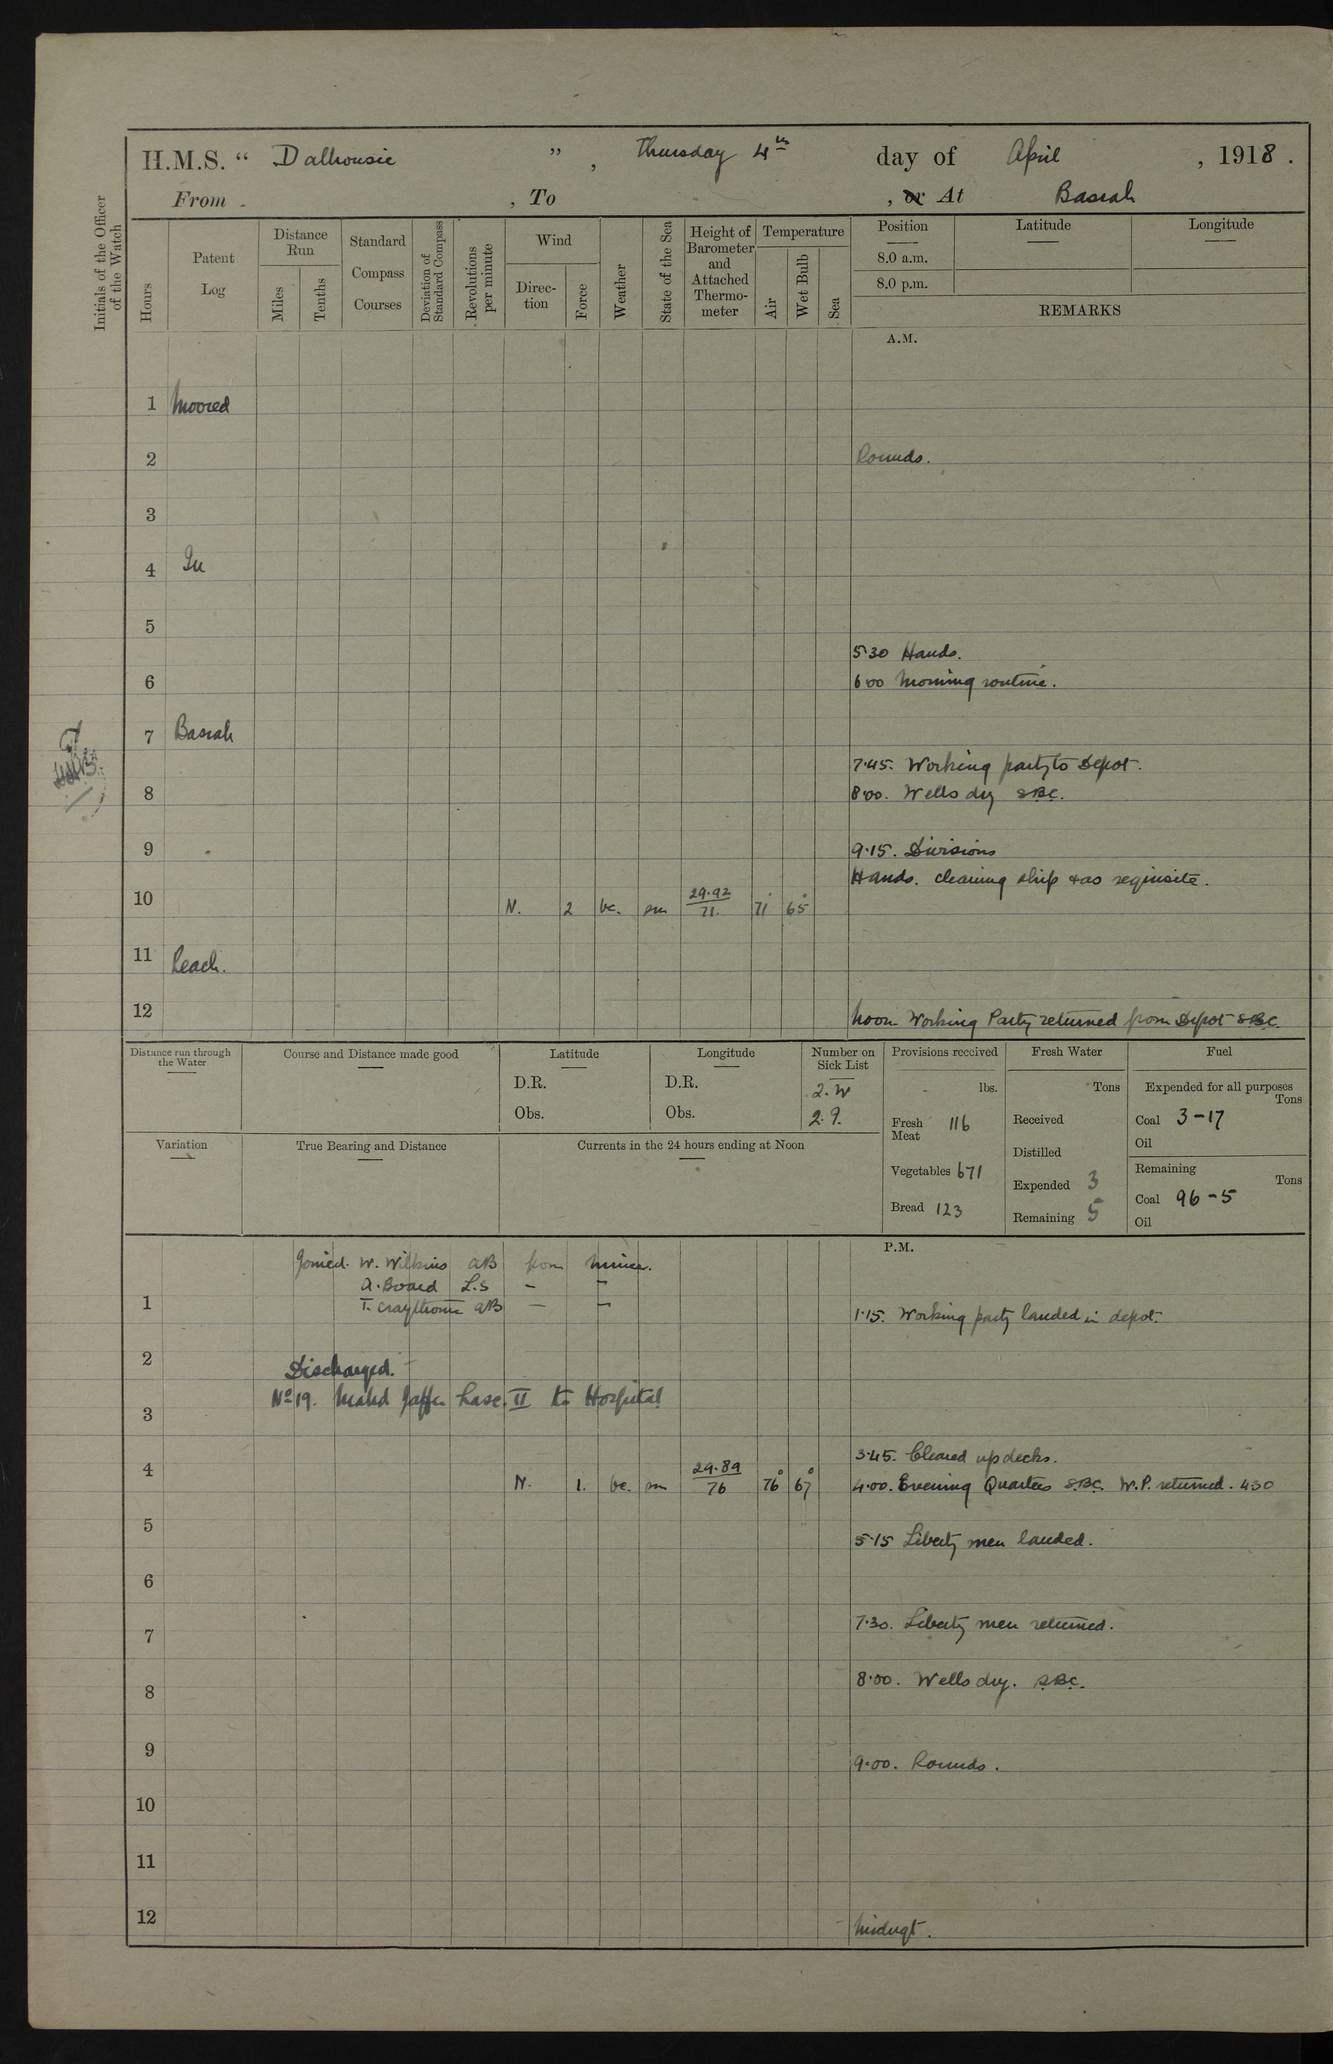 H.M.S. “ Dalhousie ” , Thursday 4th day of April , 1918 .
From , To , or At Basrah
Initials of the Officer of the Watch
Hours
Patent Log
Distance Run
Miles
Tenths
Standard Compass Courses
Deviation of Standard Compass
Revolutions per minute
Wind
Direc-tion
Force
Weather
State of the Sea
Height of Barometer and Attached Thermo-meter
Temperature
Air
Wet Bulb
Sea
Position
8.0 a.m.
8.0 p.m.
Latitude
Longitude
REMARKS
A.M.
1 Moored
2 Rounds.
3
4 In
5
5.30 Hands.
6 6.00 Morning routine.
7 Basrah
7.45. Working party to Depot.
8 8.00. Wells dry SBC.
9 9.15. Divisions
Hands. cleaning ship & as requisite.
10 N. 2 bc. sm 29.92 71. 71° 65°
11 Reach.
12 Noon Working Party returned from Depot SBC
Distance run through the Water
Course and Distance made good
Latitude
D.R.
Obs.
Longitude
D.R.
Obs.
Number on Sick List
2. W
2. 9.
Provisions received
lbs.
Fresh Meat 116
Vegetables 671
Bread 123
Fresh Water
Tons
Received
Distilled
Expended 3
Remaining 5
Fuel
Expended for all purposes
Tons
Coal 3-17
Oil
Remaining
Tons
Coal 96-5
Oil
Variation
True Bearing and Distance
Currents in the 24 hours ending at Noon
P.M.
Joined. W. Wilkins AB from
A. Board L.S – "
T. Craythorne AB – "
1 1.15. Working party landed in depot.
2 Discharged.
No 19. Mahd Jaffer Lasc. II to Hospital
3
3.45. Cleared up decks.
4 N. 1. bc. sm 29.89 76 76° 67° 4.00. Evening Quarters SBC. W.P. returned. 430
5 5.15 Liberty men landed.
6
7 7.30. Liberty men returned.
8 8.00. Wells dry. SBC.
9 9.00. Rounds.
10
11
12 Midngt.